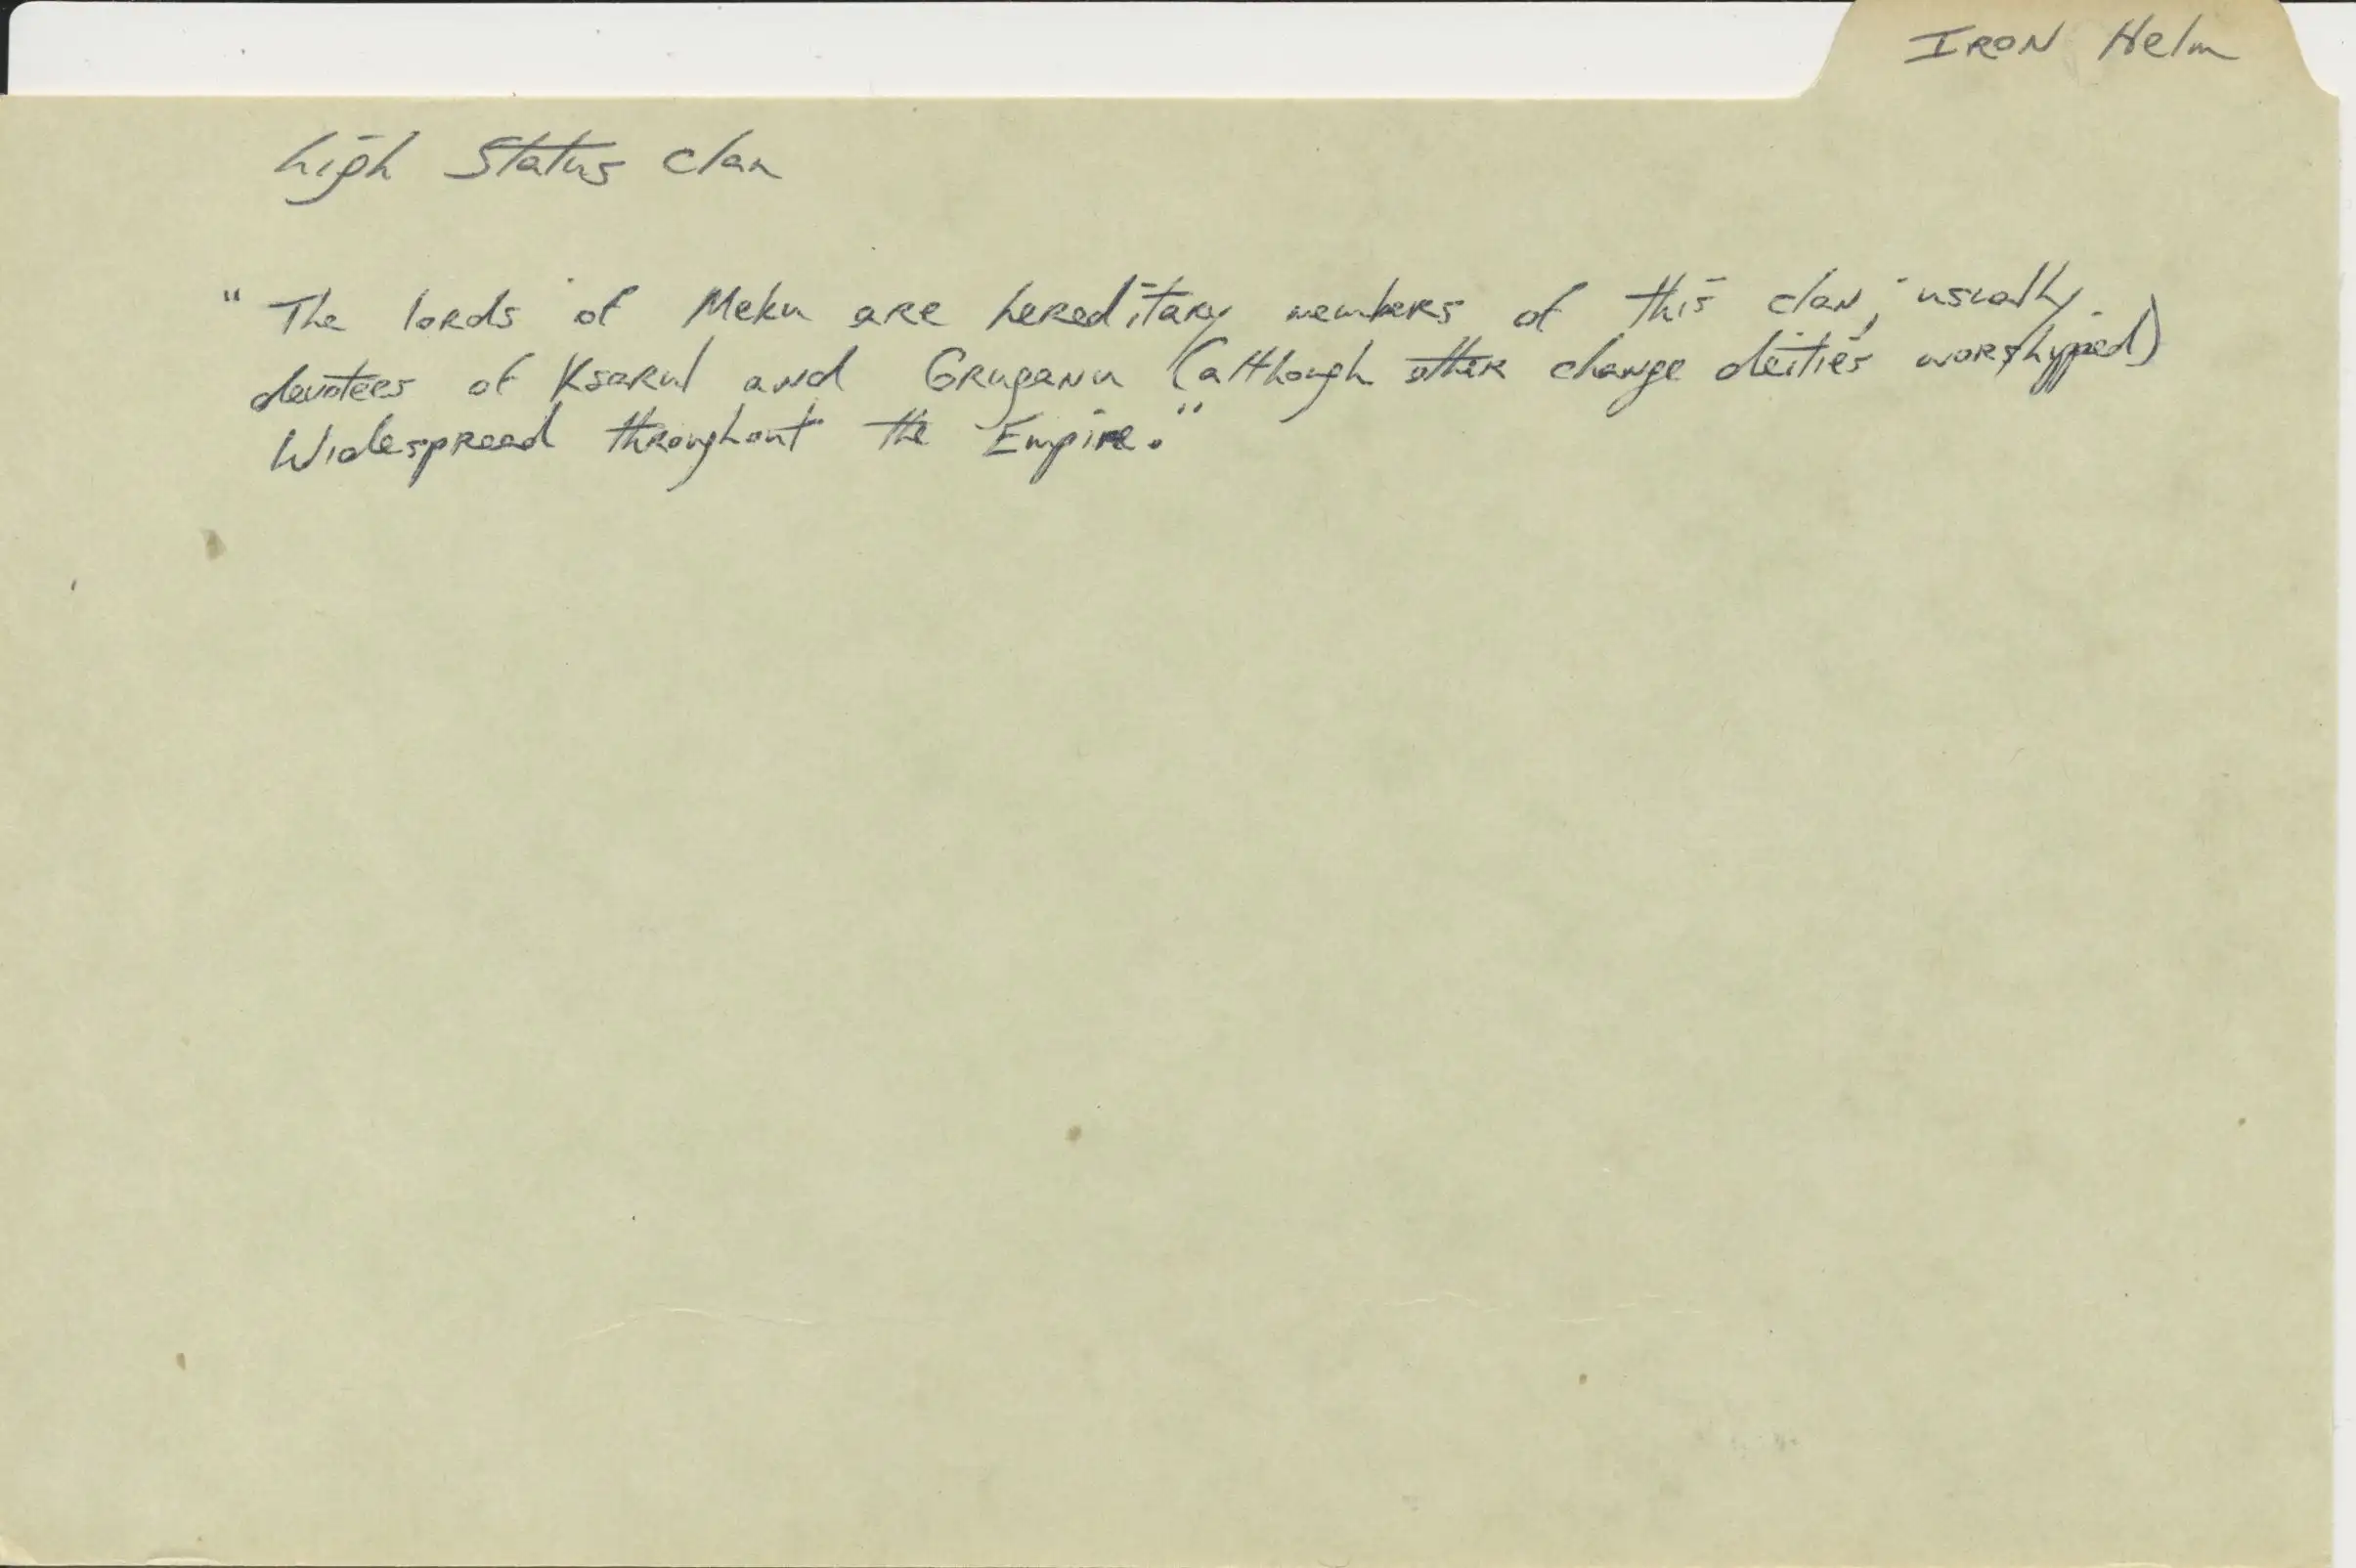 IRON Helm
high Status clan
"The lords of Meku are hereditary members of this clan; usually
devotees of Ksarul and Gruganu (although other change deities worshypped)
Widespread throughout the Empire."